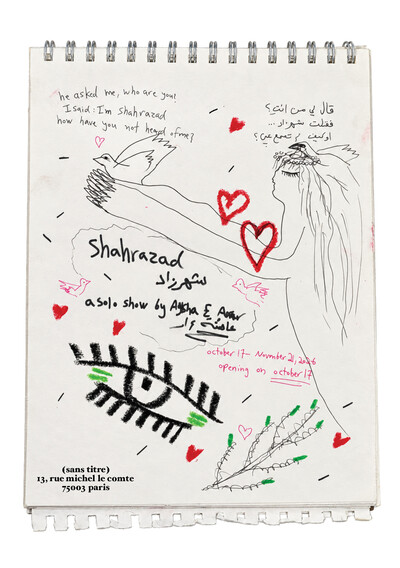 he asked me, who are you?
I said: I'm Shahrazad
how have you not heard of me?
قال لي من انتِ؟
فقلت شهرزاد...
اوكيف لم تسمع عني؟
Shahrazad
شهرزاد
a solo show by Aysha E Arar
عائشة عرار
october 17 - November 21, 2026
opening on october 17
(sans titre)
13, rue michel le comte
75003 paris